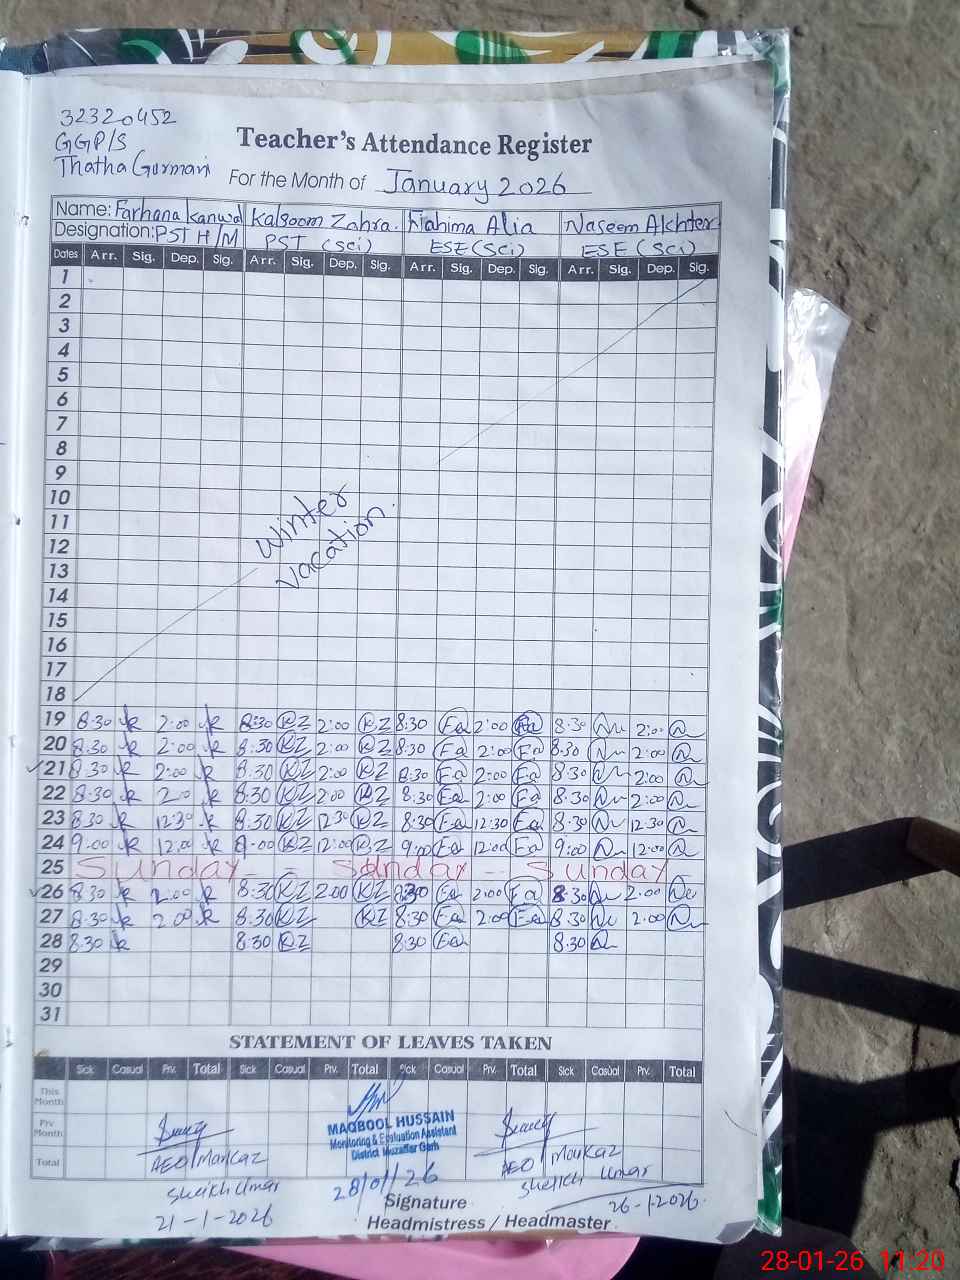 32320452
GGP/S
Thatha Gurmani
Teacher's Attendance Register
For the Month of January 2026
Name: Farhana Kanwal Kalsoom Zahra. Fahima Alia Naseem Akhter
Designation: PST H/M PST (Sci) ESE (Sci) ESE (Sci)
Dates Arr. Sig. Dep. Sig. Arr. Sig. Dep. Sig. Arr. Sig. Dep. Sig. Arr. Sig. Dep. Sig.
1
2
3
4
5
6
7
8
9
10
11
12
13
14
15
16
17
18
Winter
Vacation.
19 8:30 2:00 8:30 KZ 2:00 KZ 8:30 Fa 2:00 Fa 8:30 2:00
20 8:30 2:00 8:30 KZ 2:00 KZ 8:30 Fa 2:00 Fa 8:30 2:00
21 8:30 2:00 8:30 KZ 2:00 KZ 8:30 Fa 2:00 Fa 8:30 2:00
22 8:30 200 8:30 KZ 2:00 KZ 8:30 Fa 2:00 Fa 8:30 2:00
23 8:30 12:30 8:30 KZ 12:30 KZ 8:30 Fa 12:30 Fa 8:30 12:30
24 9:00 12:00 9:00 KZ 12:00 KZ 9:00 Fa 12:00 Fa 9:00 12:00
25 Sunday - - Sunday - - Sunday -
26 8:30 2:00 8:30 KZ 2:00 KZ 8:30 Fa 2:00 Fa 8:30 2:00
27 8:30 2:00 8:30 KZ KZ 8:30 Fa 2:00 Fa 8:30 2:00
28 8:30 8:30 KZ 8:30 Fa 8:30
29
30
31
STATEMENT OF LEAVES TAKEN
Sick Casual Prv. Total Sick Casual Prv. Total Sick Casual Prv. Total Sick Casual Prv. Total
This Month
Prv Month
Total
AEO Markaz
Sheikh Umar
21-1-2026
MAQBOOL HUSSAIN
Monitoring & Evaluation Assistant
District Muzaffar Garh
28/01/26
AEO Markaz
Sheikh Umar
26-1-2026.
Signature
Headmistress / Headmaster
28-01-26 11:20